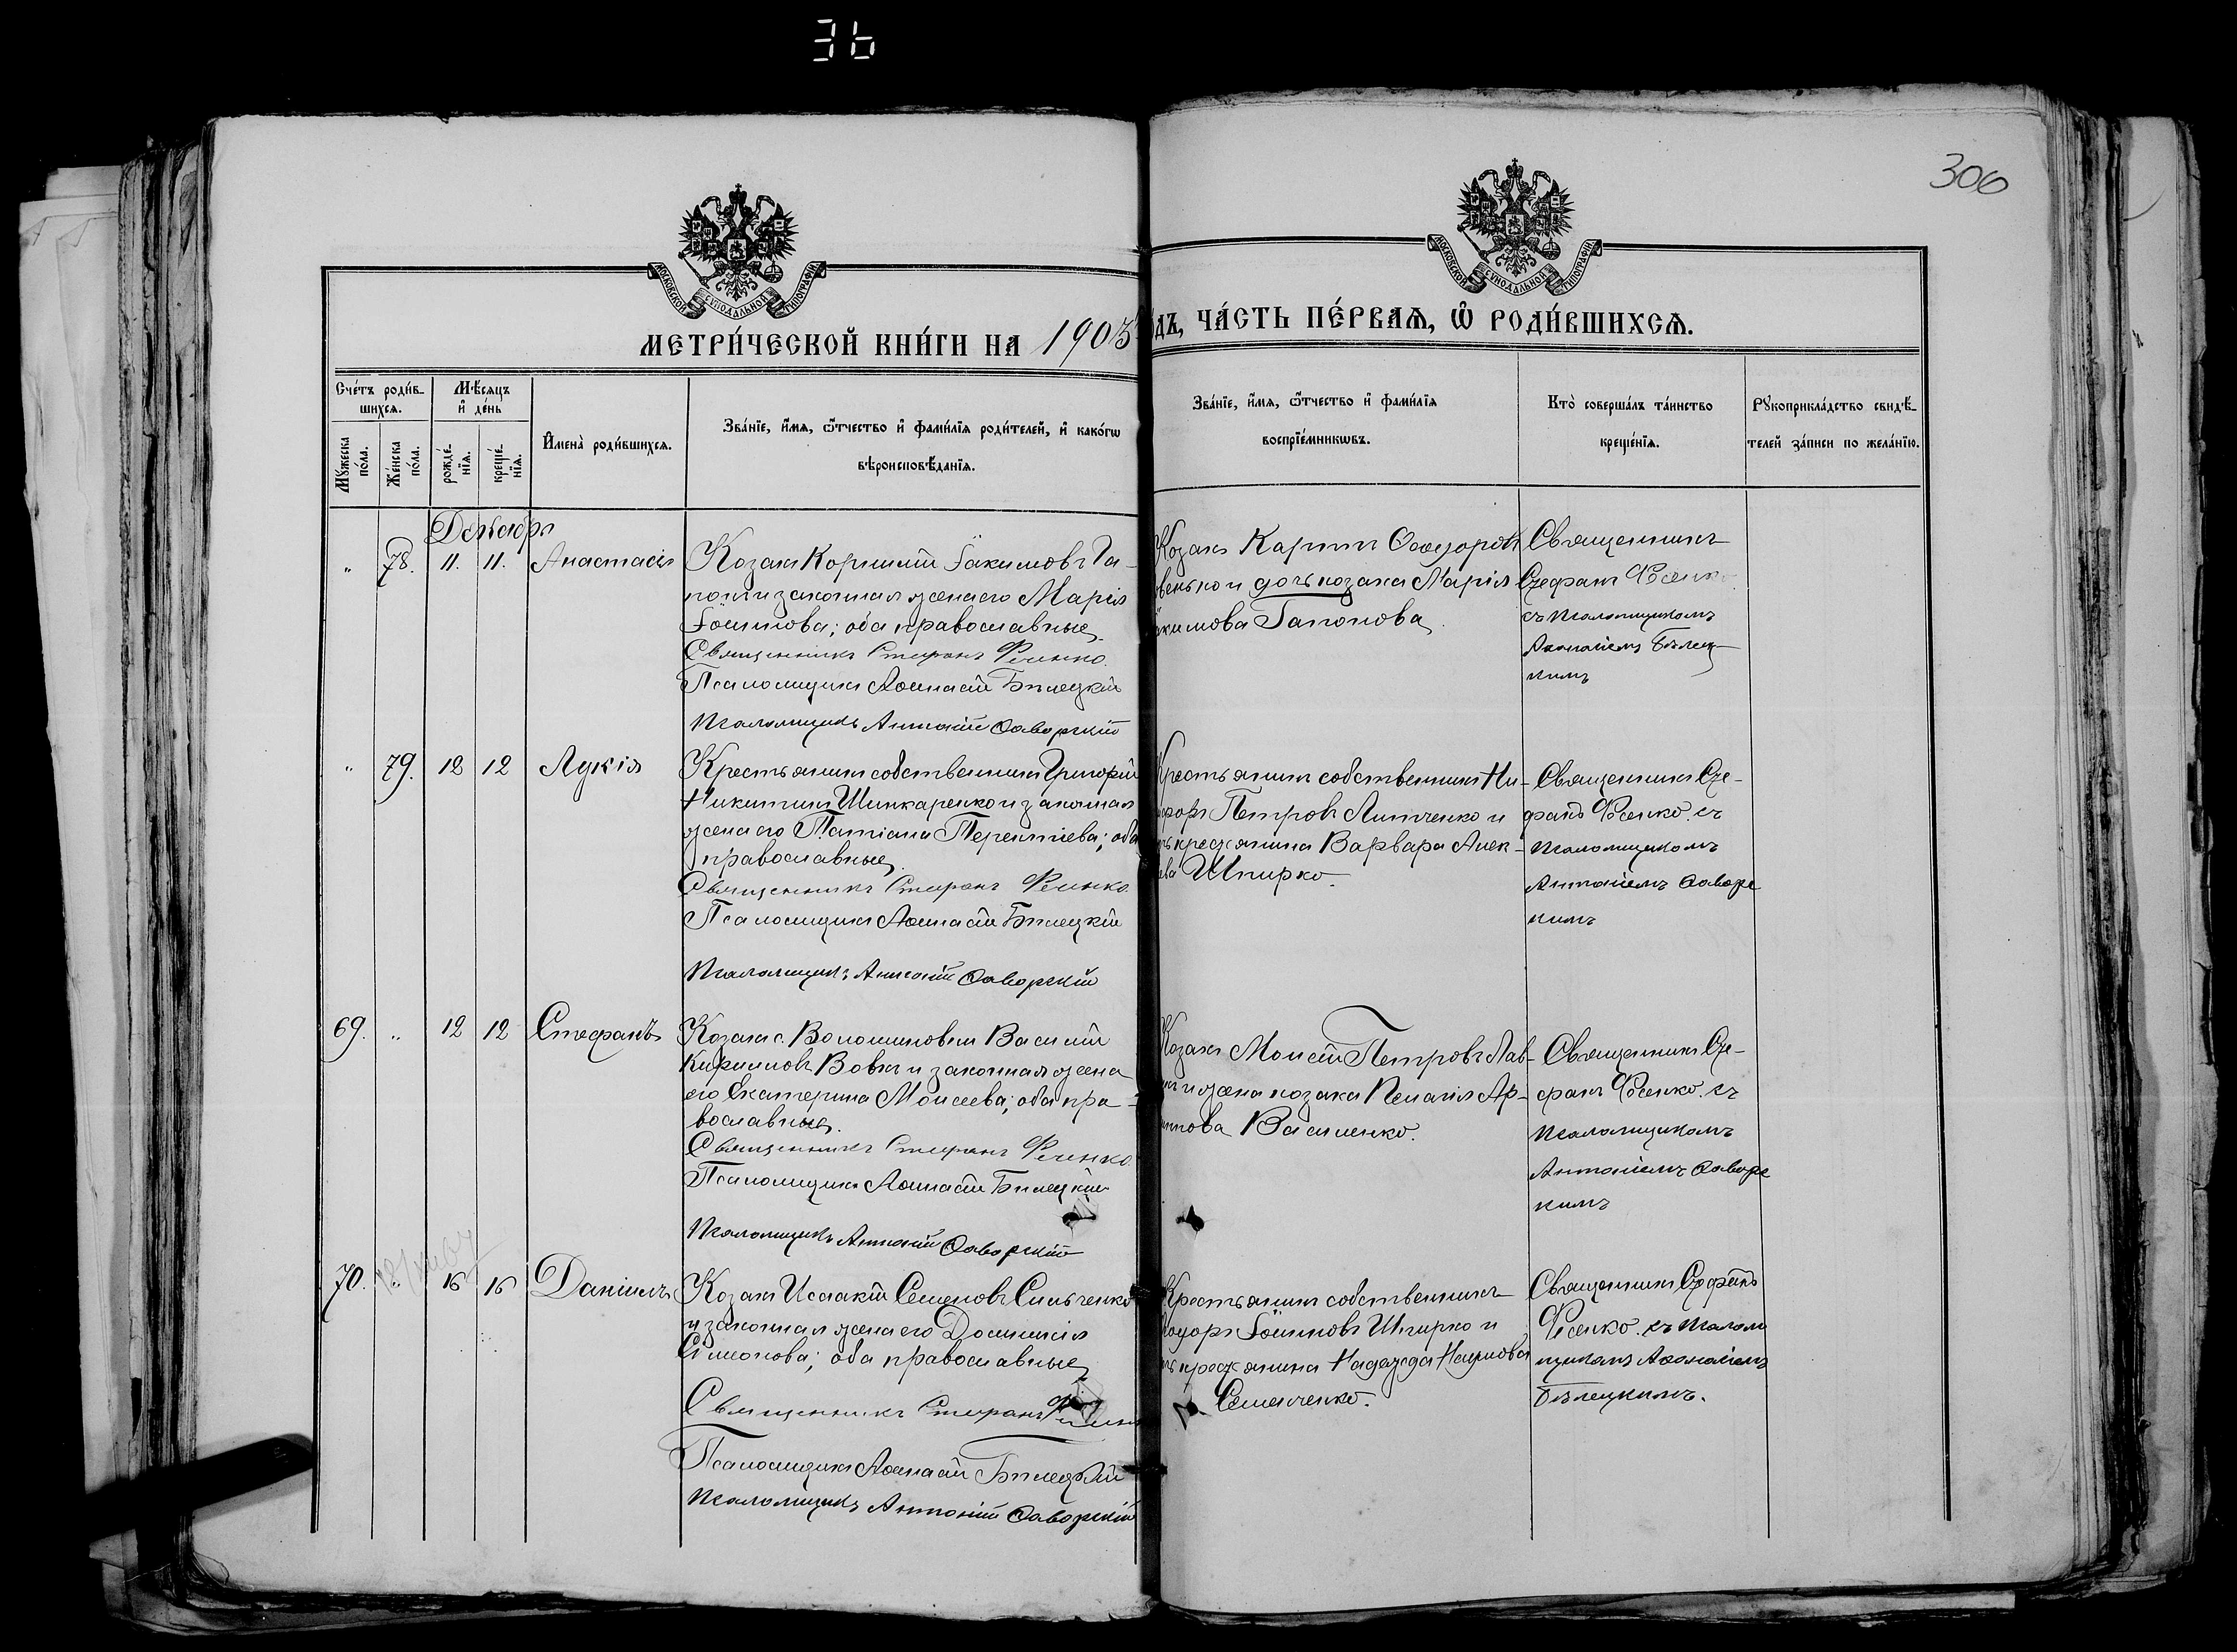 36
306
МОСКОВСКОЙ СУНОДАЛЬНОЙ ТИПОГРАФІИ
МОСКОВСКОЙ СУНОДАЛЬНОЙ ТИПОГРАФІИ
МЕТРИ́ЧЕСКОЙ КНИ́ГИ НА 1903
ДЪ, ЧА́СТЬ ПЕ́РВАѦ, Ѡ҆ РОДИ́ВШИХСѦ.
Сче́тъ роди́в-
шихсѧ.
Мѣ́сѧцъ
и҆ де́нь
Мꙋ́жеска
по́ла.
Же́нска
по́ла.
рожде́-
нїѧ.
креще́-
нїѧ.
И҆мена̀ роди́вшихсѧ.
Зва́нїе, и҆́мѧ, ѻ҆́тчество и҆ фами́лїѧ роди́телей, и҆ како́гѡ
вѣроисповѣ́данїѧ.
Зва́нїе, и҆́мѧ, ѻ҆́тчество и҆ фами́лїѧ
воспрїе́мникѡвъ.
Кто̀ соверша́лъ та́инство
креще́нїѧ.
Рꙋкоприкла́дство свидѣ́-
телей за́писи по жела́нїю.
Декабрь
" 78. 11. 11. Анастасія
Козакъ Корнилій Іакимовъ Га-
понъ и законная жена его Марія
Іосифова; оба православные.
Священникъ Стефанъ Фесенко.
Псаломщикъ Аѳанасій Бѣлецкій
Псаломщикъ Антоній Яворскій
Козакъ Карпъ Ѳеодоровъ
венько и дочь козака Марія
кимова Гапонова.
Священникъ
Стефанъ Фесенко
съ псаломщикомъ
Аѳанасіемъ Бѣлец-
кимъ
" 79. 12 12 Лукія
Крестьянинъ собственникъ Григорій
Никитинъ Шинкаренко и законная
жена его Татіана Терентіева; оба
православные.
Священникъ Стефанъ Фесенко.
Псаломщикъ Аѳанасій Бѣлецкій
Псаломщикъ Антоній Яворскій
Крестьянинъ собственникъ Ни-
форъ Петровъ Литченко и
крестьянина Варвара Алек-
ева Шпирко.
Священникъ Сте-
фанъ Фесенко съ
псаломщикомъ
Антоніемъ Яворс
кимъ
69. " 12 12 Стефанъ
Козакъ с. Волошиновки Василій
Кирилловъ Вовкъ и законная жена
его Екатерина Моисеева; оба пра-
вославные.
Священникъ Стефанъ Фесенко
Псаломщикъ Аѳанасій Бѣлецкій
Псаломщикъ Антоній Яворскій
Козакъ Моисей Петровъ Лав-
и жена козака Пелагія Ар-
Василенко.
Священникъ Сте-
фанъ Фесенко съ
псаломщикомъ
Антоніемъ Яворс
кимъ
70. " 16 16 Даніилъ
Козакъ Исаакій Семеновъ Сильченко
и законная жена его Домникія
Симонова; оба православные
Священникъ Стефанъ Фесенко
Псаломщикъ Аѳанасій Бѣлецкій
Псаломщикъ Антоній Яворскій
Крестьянинъ собственникъ
Іосифовъ Шпирко и
крестьянина Надежда Наумова
Семенченко.
Священникъ Стефанъ
Фесенко съ псалом
щикомъ Аѳанасіемъ
Бѣлецкимъ.